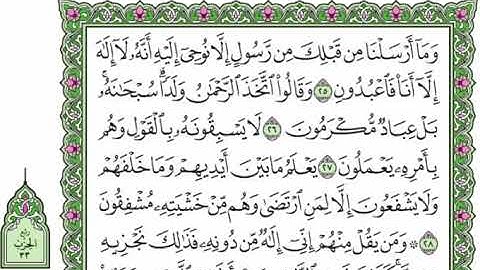 وَمَآ أَرۡسَلۡنَا مِن قَبۡلِكَ مِن رَّسُولٍ إِلَّا نُوحِيٓ إِلَيۡهِ أَنَّهُۥ لَآ إِلَٰهَ
إِلَّآ أَنَا۠ فَٱعۡبُدُونِ ٢٥ وَقَالُواْ ٱتَّخَذَ ٱلرَّحۡمَٰنُ وَلَدٗاۗ سُبۡحَٰنَهُۥۚ
بَلۡ عِبَادٞ مُّكۡرَمُونَ ٢٦ لَا يَسۡبِقُونَهُۥ بِٱلۡقَوۡلِ وَهُم
بِأَمۡرِهِۦ يَعۡمَلُونَ ٢٧ يَعۡلَمُ مَا بَيۡنَ أَيۡدِيهِمۡ وَمَا خَلۡفَهُمۡ
وَلَا يَشۡفَعُونَ إِلَّا لِمَنِ ٱرۡتَضَىٰ وَهُم مِّنۡ خَشۡيَتِهِۦ مُشۡفِقُونَ
٢٨ ۞ وَمَن يَقُلۡ مِنۡهُمۡ إِنِّيٓ إِلَٰهٞ مِّن دُونِهِۦ فَذَٰلِكَ نَجۡزِيهِ
ربع
الحزب
٣٣